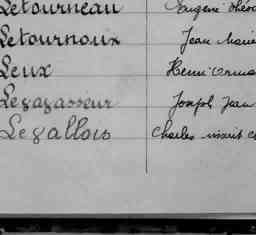 Letourneau Eugene
Letournoux Jean Marie
Leux Henri
Legagasseur Joseph Jean
Legallois Charles